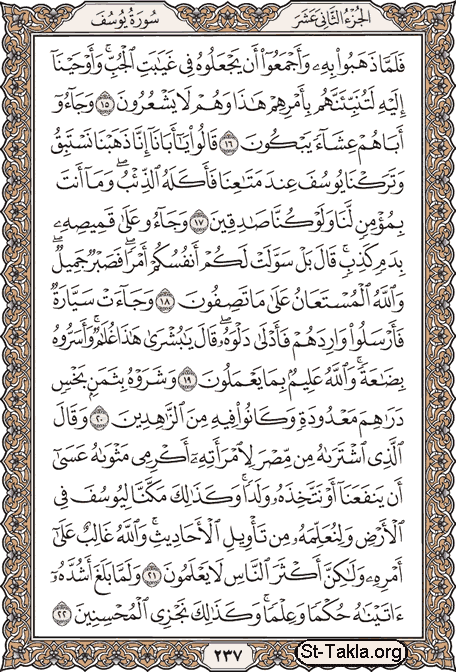 الجزء الثاني عشر
سورة يوسف
فَلَمَّا ذَهَبُوا۟ بِهِۦ وَأَجْمَعُوٓا۟ أَن يَجْعَلُوهُ فِى غَيَٰبَتِ ٱلْجُبِّ ۚ وَأَوْحَيْنَآ
إِلَيْهِ لَتُنَبِّئَنَّهُم بِأَمْرِهِمْ هَٰذَا وَهُمْ لَا يَشْعُرُونَ ١٥ وَجَآءُوٓ
أَبَاهُمْ عِشَآءً يَبْكُونَ ١٦ قَالُوا۟ يَٰٓأَبَانَآ إِنَّا ذَهَبْنَا نَسْتَبِقُ
وَتَرَكْنَا يُوسُفَ عِندَ مَتَٰعِنَا فَأَكَلَهُ ٱلذِّئْبُ ۖ وَمَآ أَنتَ
بِمُؤْمِنٍ لَّنَا وَلَوْ كُنَّا صَٰدِقِينَ ١٧ وَجَآءُو عَلَىٰ قَمِيصِهِۦ
بِدَمٍ كَذِبٍ ۚ قَالَ بَلْ سَوَّلَتْ لَكُمْ أَنفُسُكُمْ أَمْرًا ۖ فَصَبْرٌ جَمِيلٌ ۖ
وَٱللَّهُ ٱلْمُسْتَعَانُ عَلَىٰ مَا تَصِفُونَ ١٨ وَجَآءَتْ سَيَّارَةٌ
فَأَرْسَلُوا۟ وَارِدَهُمْ فَأَدْلَىٰ دَلْوَهُۥ ۖ قَالَ يَٰبُشْرَىٰ هَٰذَا غُلَٰمٌ ۚ وَأَسَرُّوهُ
بِضَٰعَةً ۚ وَٱللَّهُ عَلِيمٌۢ بِمَا يَعْمَلُونَ ١٩ وَشَرَوْهُ بِثَمَنٍۭ بَخْسٍ
دَرَٰهِمَ مَعْدُودَةٍ وَكَانُوا۟ فِيهِ مِنَ ٱلزَّٰهِدِينَ ٢٠ وَقَالَ
ٱلَّذِى ٱشْتَرَىٰهُ مِن مِّصْرَ لِٱمْرَأَتِهِۦٓ أَكْرِمِى مَثْوَىٰهُ عَسَىٰٓ
أَن يَنفَعَنَآ أَوْ نَتَّخِذَهُۥ وَلَدًا ۚ وَكَذَٰلِكَ مَكَّنَّا لِيُوسُفَ فِى
ٱلْأَرْضِ وَلِنُعَلِّمَهُۥ مِن تَأْوِيلِ ٱلْأَحَادِيثِ ۚ وَٱللَّهُ غَالِبٌ عَلَىٰٓ
أَمْرِهِۦ وَلَٰكِنَّ أَكْثَرَ ٱلنَّاسِ لَا يَعْلَمُونَ ٢١ وَلَمَّا بَلَغَ أَشُدَّهُۥٓ
ءَاتَيْنَٰهُ حُكْمًا وَعِلْمًا ۚ وَكَذَٰلِكَ نَجْزِى ٱلْمُحْسِنِينَ ٢٢
٢٣٧
St-Takla.org